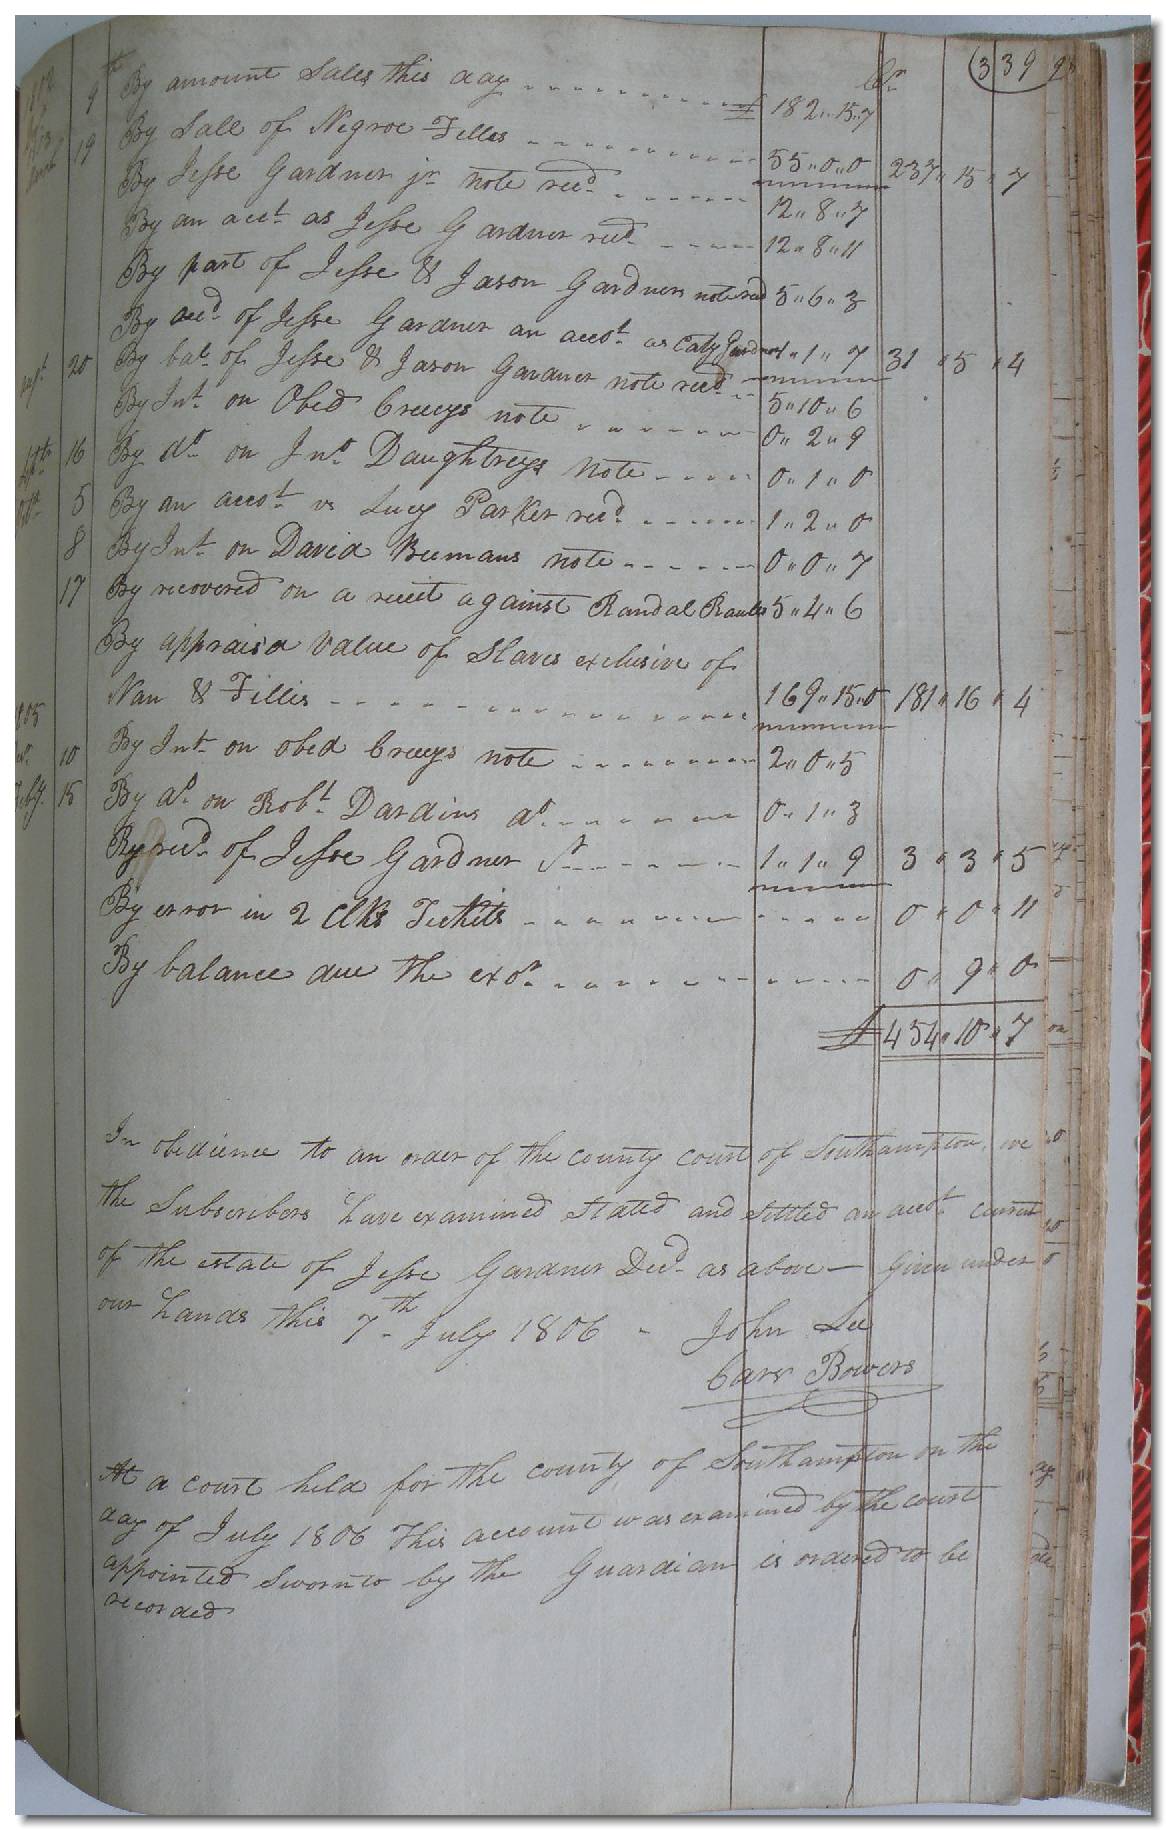 339
Cr
9th By amount Sales this day £ 182 " 15 " 7
19 By Sale of Negroe Fillis 55 " 0 " 0 237 " 15 " 7
By Jesse Gardner jr note recd 12 " 8 " 7
By an acct as Jesse Gardner recd 12 " 8 " 11
By part of Jesse & Jason Gardners note recd 5 " 6 " 3
By recd of Jesse Gardner an accot as Caty Gardner 1 " 1 " 7 31 " 5 " 4
20 By bal of Jesse & Jason Gardner note recd 5 " 10 " 6
By Int on Obed Creeys note 0 " 2 " 9
16 By do on Jno Daughtreys note 0 " 1 " 0
5 By an accot vs Lucy Parker recd 1 " 2 " 0
8 By Int on David Beemans note 0 " 0 " 7
17 By recovered on a receit against Randal Rawls 5 " 4 " 6
By appraisd Value of Slaves exclusive of
Nan & Fillis 169 " 15 " 0 181 " 16 " 4
10 By Int on obed Creeys note 2 " 0 " 5
15 By do on Robt Dardins do 0 " 1 " 3
By recd of Jesse Gardner Sr 1 " 1 " 9 3 " 3 " 5
By error in 2 Clks Tickits 0 " 0 " 11
By balance due the exor 0 " 9 " 0
£ 454 " 10 " 7
In obedience to an order of the county court of Southampton, we
the Subscribers have examined Stated and Settled an accot current
of the estate of Jesse Gardner Decd as above — Given under
our hands this 7th July 1806 - John Lee
Carr Bowers
At a court held for the county of Southampton on the
day of July 1806 This account was examined by the court
appointed Sworn to by the Guardian is ordered to be
recorded